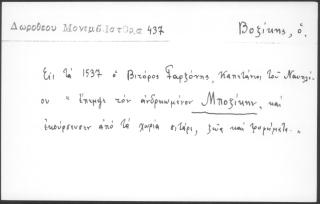 Δωροθέου Μονεμβασίας 437
Βοζίκης, ὁ.
Εἰς τὰ 1537 ὁ Βιτόρος Γαρζόνης, Καπετάνιος τοῦ Ναυπλί-
ου " ἔπεμψε τὸν ἀνδρωμένον Μποζίκην, καὶ
ἐκούρσευσεν ἀπὸ τὰ χωρία σιτάρι, ζῶα καὶ τρυφώματα. "